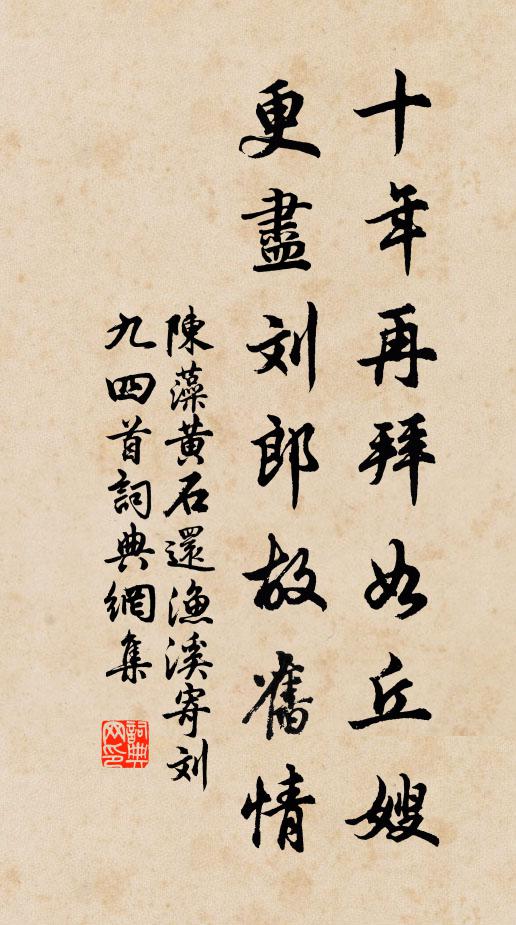 十年再拜如丘嫂
更盡刘郎故舊情
陳藻黄石還漁溪寄刘
九四首詞典網集
詞典
网印